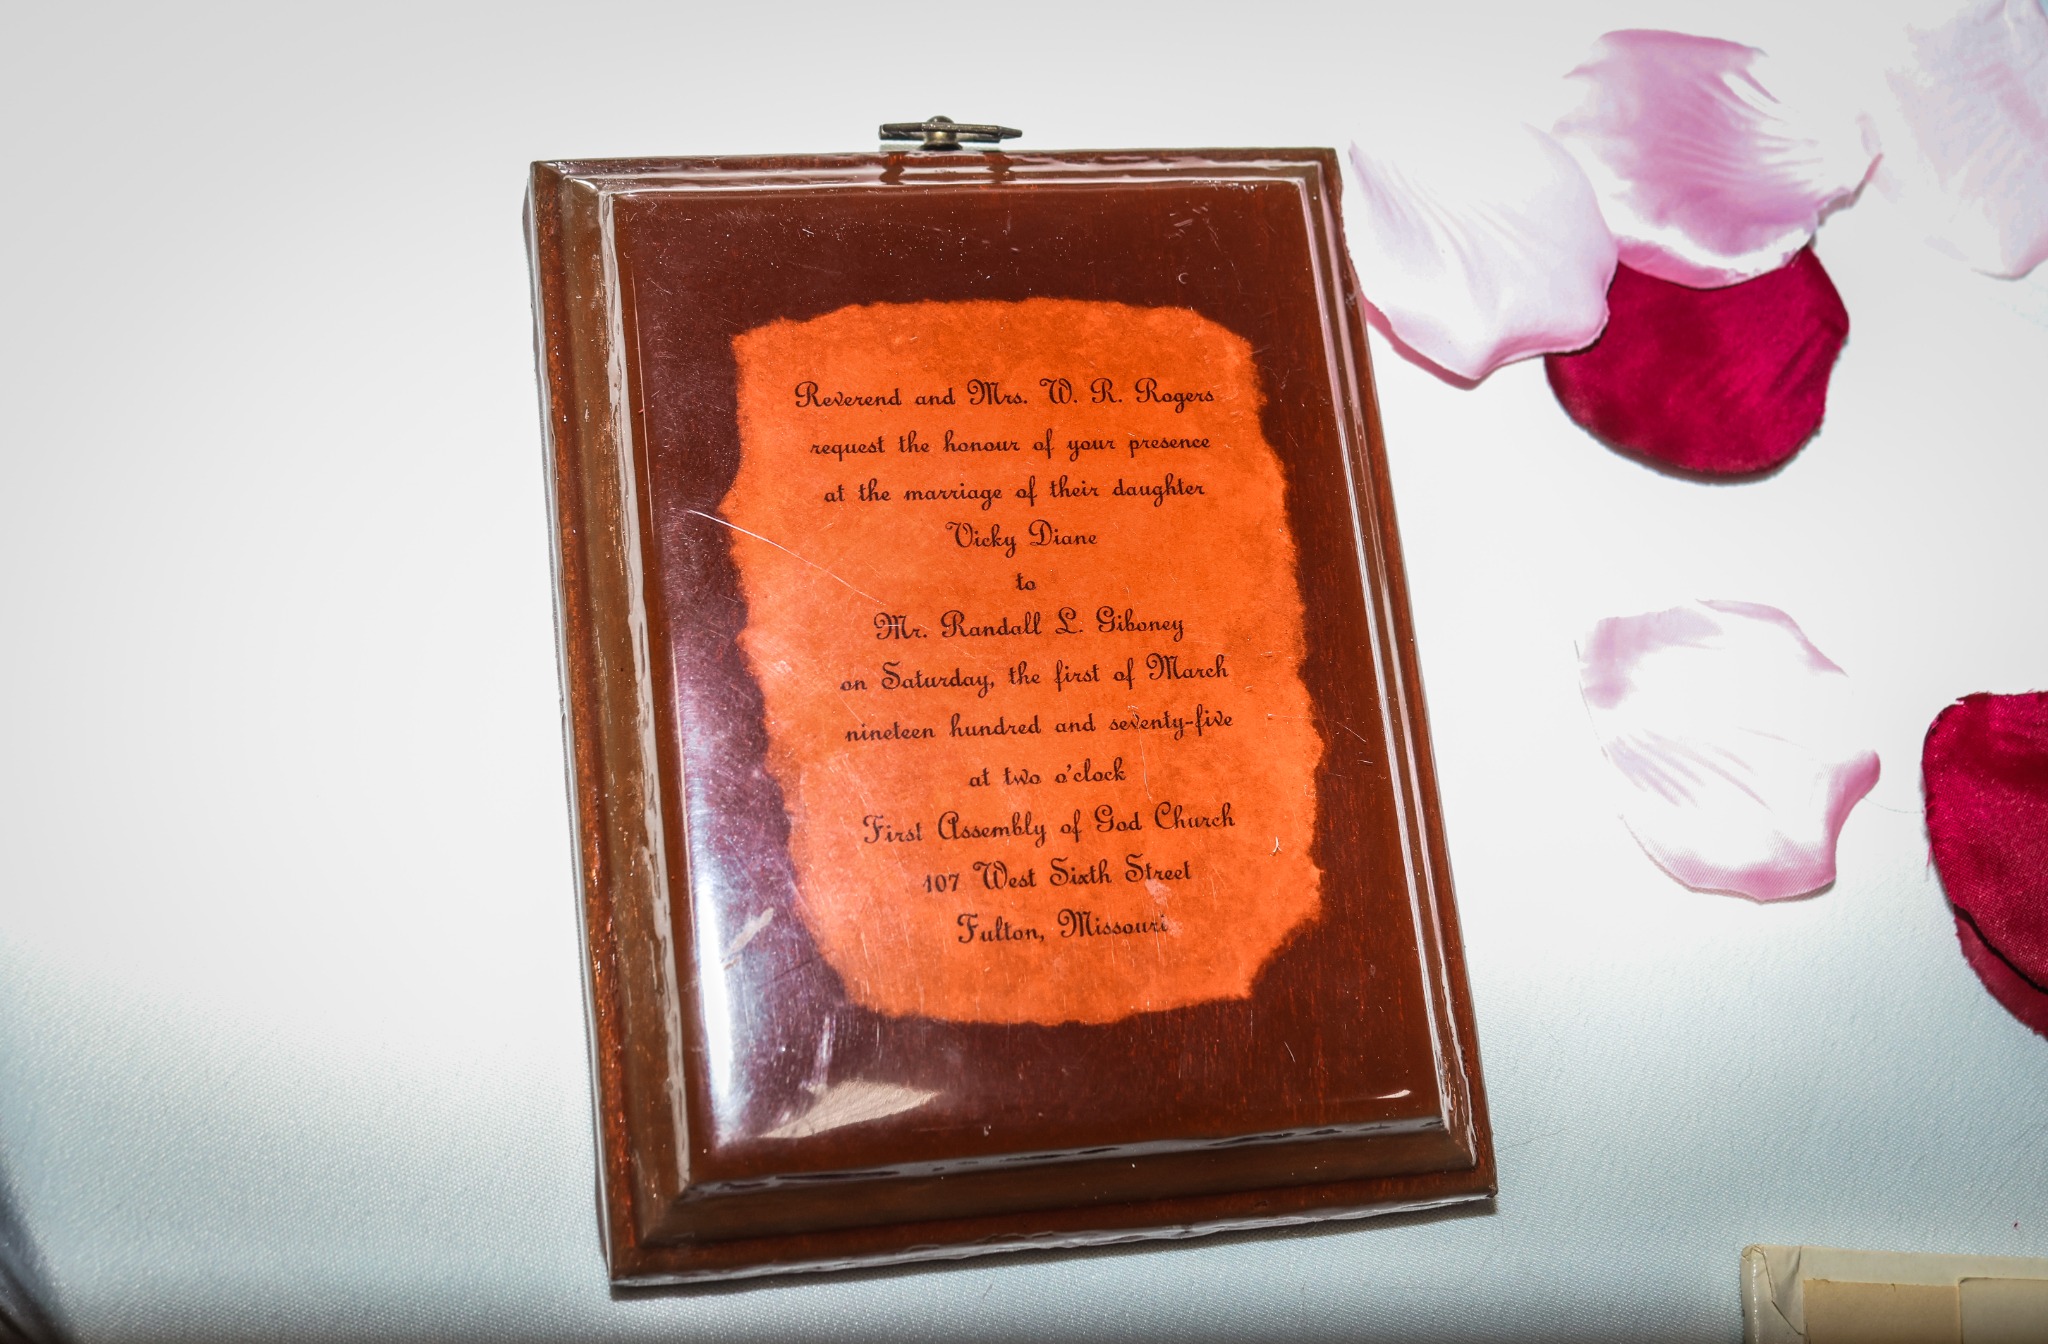 Reverend and Mrs. W. R. Rogers
request the honour of your presence
at the marriage of their daughter
Vicky Diane
to
Mr. Randall L. Giboney
on Saturday, the first of March
nineteen hundred and seventy-five
at two o'clock
First Assembly of God Church
107 West Sixth Street
Fulton, Missouri